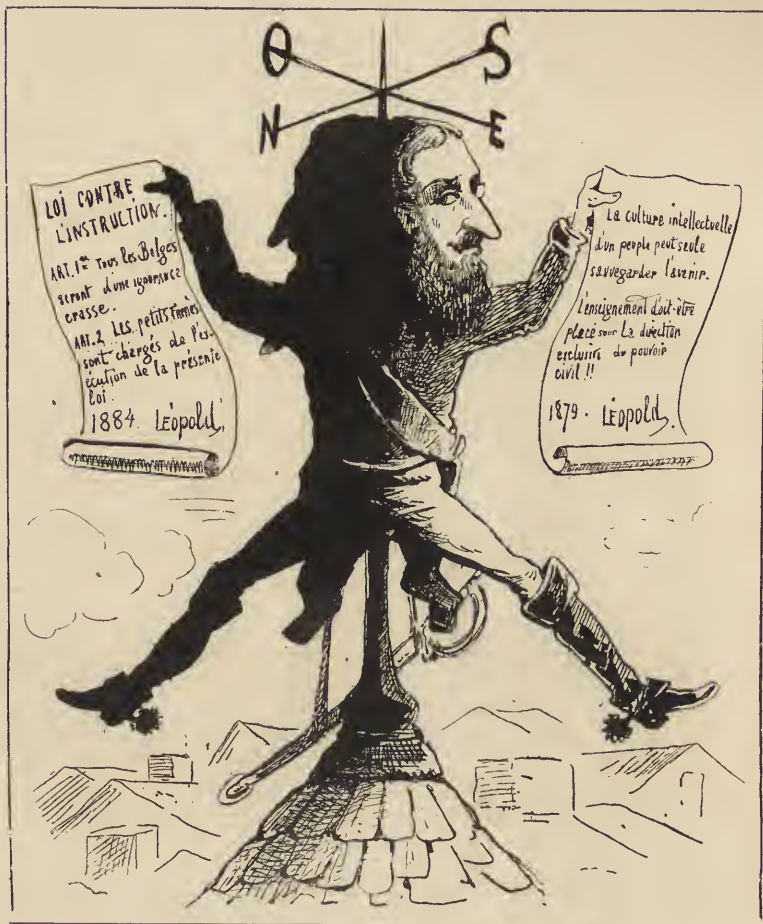 O S
N E
LOI CONTRE
L'INSTRUCTION.
ART. 1er Tous les Belges
seront d'une ignorance
crasse.
ART. 2 Les petits frères
sont chargés de l'ex-
écution de la présente
loi.
1884 LÉOPOLD.
La culture intellectuelle
d'un peuple peut seule
sauvegarder l'avenir.
L'enseignement doit-être
placé sous La direction
exclusive du pouvoir
civil !!
1879. LÉOPOLD.